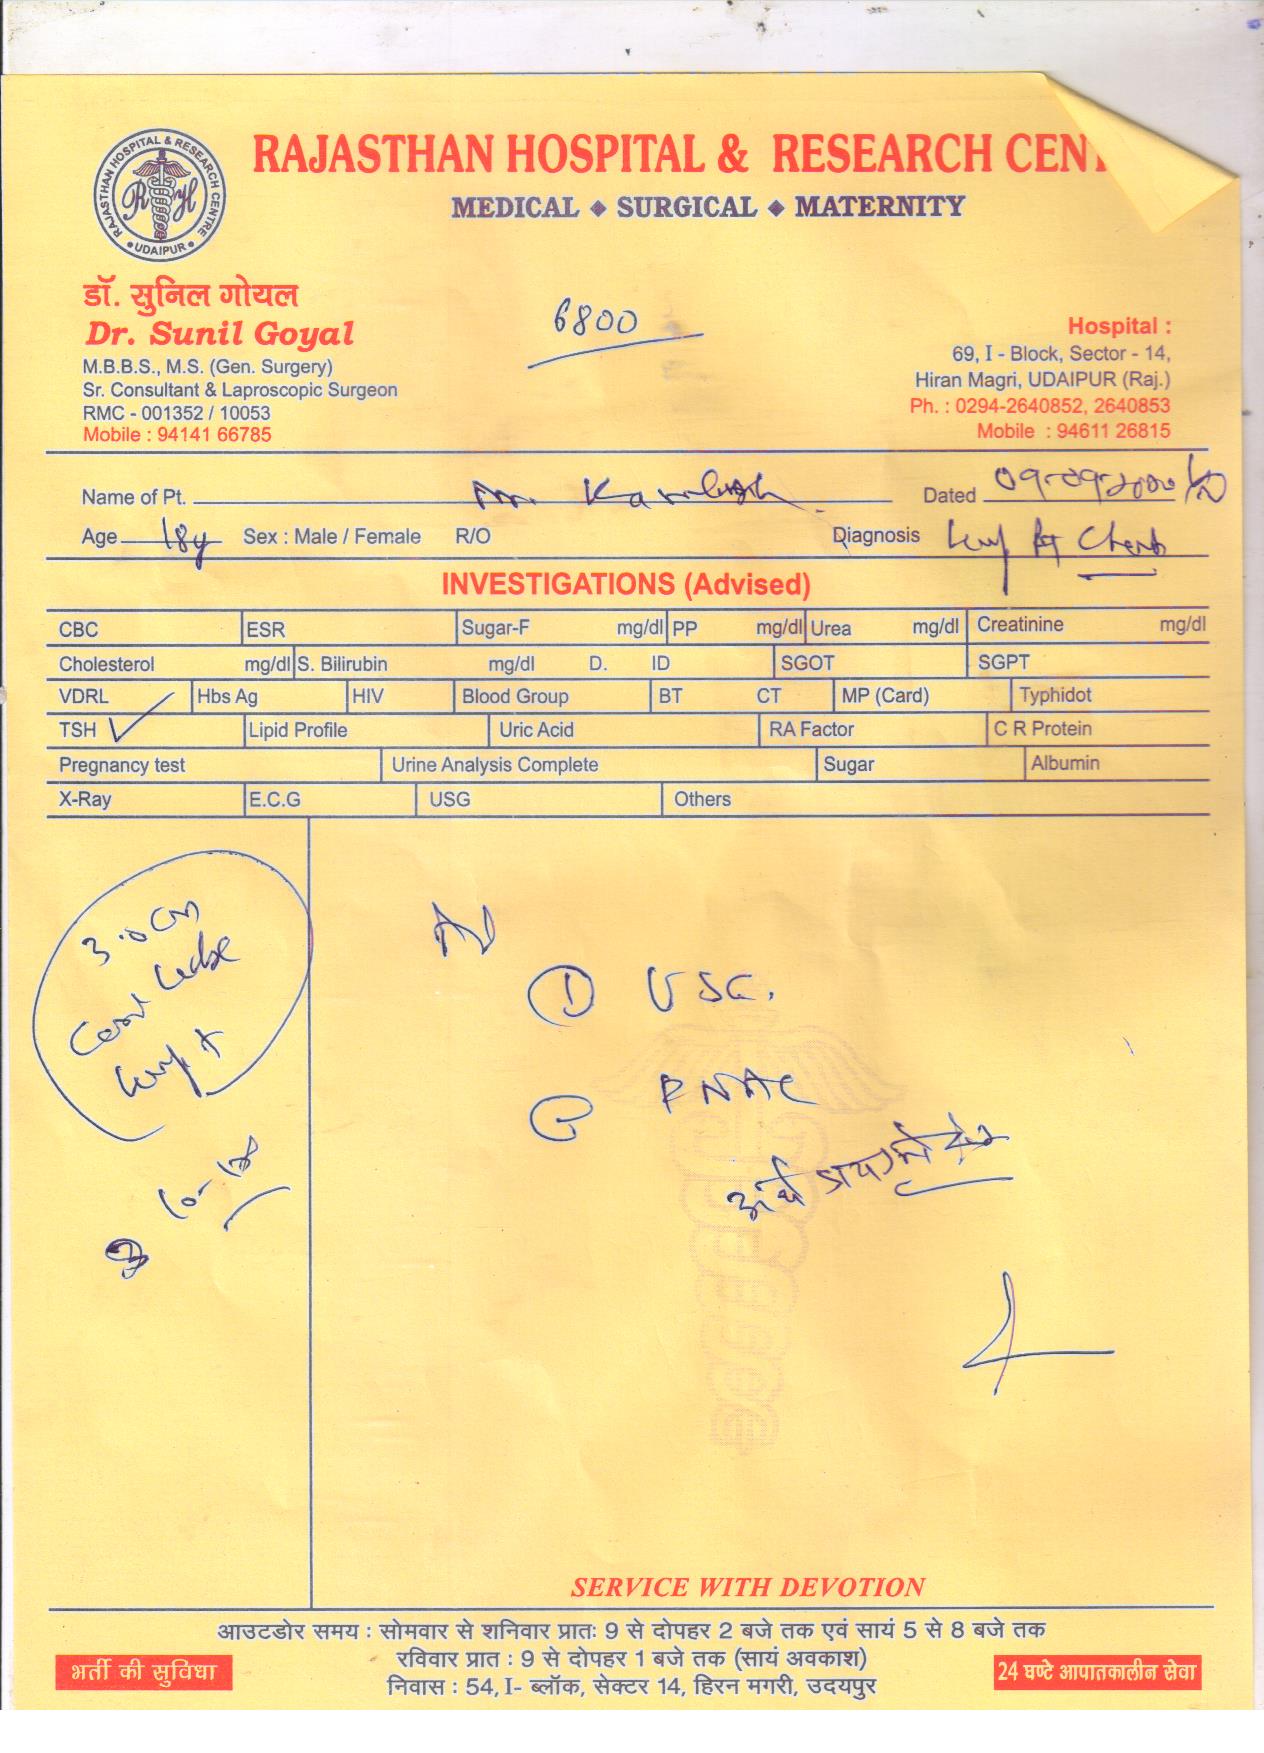 RAJASTHAN HOSPITAL & RESEARCH CENT
MEDICAL ◆ SURGICAL ◆ MATERNITY
RAJASTHAN HOSPITAL & RESEARCH CENTRE
• UDAIPUR •
डॉ. सुनिल गोयल
Dr. Sunil Goyal
M.B.B.S., M.S. (Gen. Surgery)
Sr. Consultant & Laproscopic Surgeon
RMC - 001352 / 10053
Mobile : 94141 66785
6800
Hospital :
69, I - Block, Sector - 14,
Hiran Magri, UDAIPUR (Raj.)
Ph. : 0294-2640852, 2640853
Mobile : 94611 26815
Name of Pt.
Dated
Age 18y Sex : Male / Female R/O
Diagnosis
INVESTIGATIONS (Advised)
CBC ESR Sugar-F mg/dl PP mg/dl Urea mg/dl Creatinine mg/dl
Cholesterol mg/dl S. Bilirubin mg/dl D. ID SGOT SGPT
VDRL Hbs Ag HIV Blood Group BT CT MP (Card) Typhidot
TSH ✓ Lipid Profile Uric Acid RA Factor C R Protein
Pregnancy test Urine Analysis Complete Sugar Albumin
X-Ray E.C.G USG Others
3.0 cm
① USG.
② FNAC
SERVICE WITH DEVOTION
आउटडोर समय : सोमवार से शनिवार प्रातः 9 से दोपहर 2 बजे तक एवं सायं 5 से 8 बजे तक
रविवार प्रात : 9 से दोपहर 1 बजे तक (सायं अवकाश)
निवास : 54, I- ब्लॉक, सेक्टर 14, हिरन मगरी, उदयपुर
भर्ती की सुविधा
24 घण्टे आपातकालीन सेवा